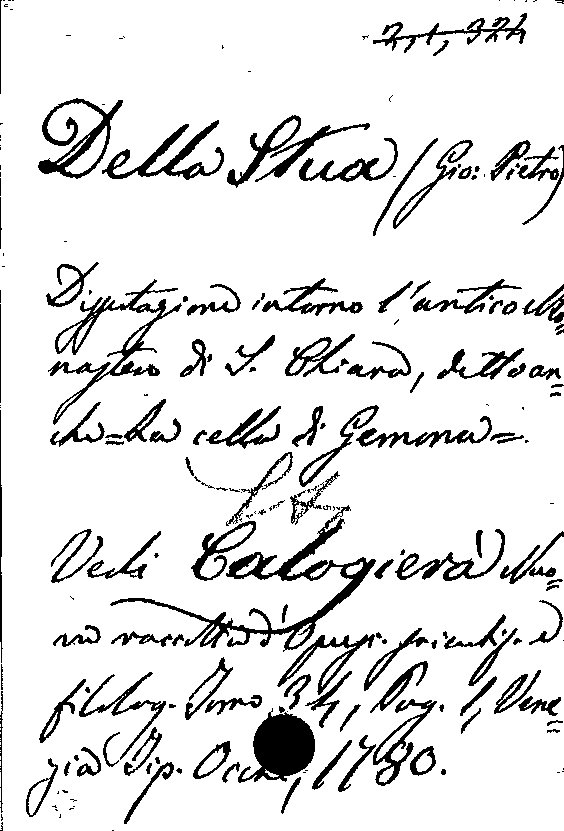 2, 1, 324
Della Stua (Gio: Pietro)
Dissertazione intorno l'antico Mo=
nastero di S. Chiara, detto an=
che = La cella di Gemona =.
Vedi Calogierà Nuo=
va raccolta d'Opusc. scientif. e
filolog. Tomo 34, Pag. 1, Vene=
zia Tip. Occhi, 1780.